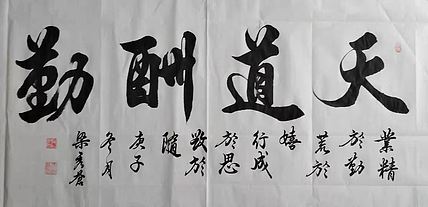 天道酬勤
業精
於勤
荒於
嬉
行成
於思
毀於
隨
庚子
冬月
梁